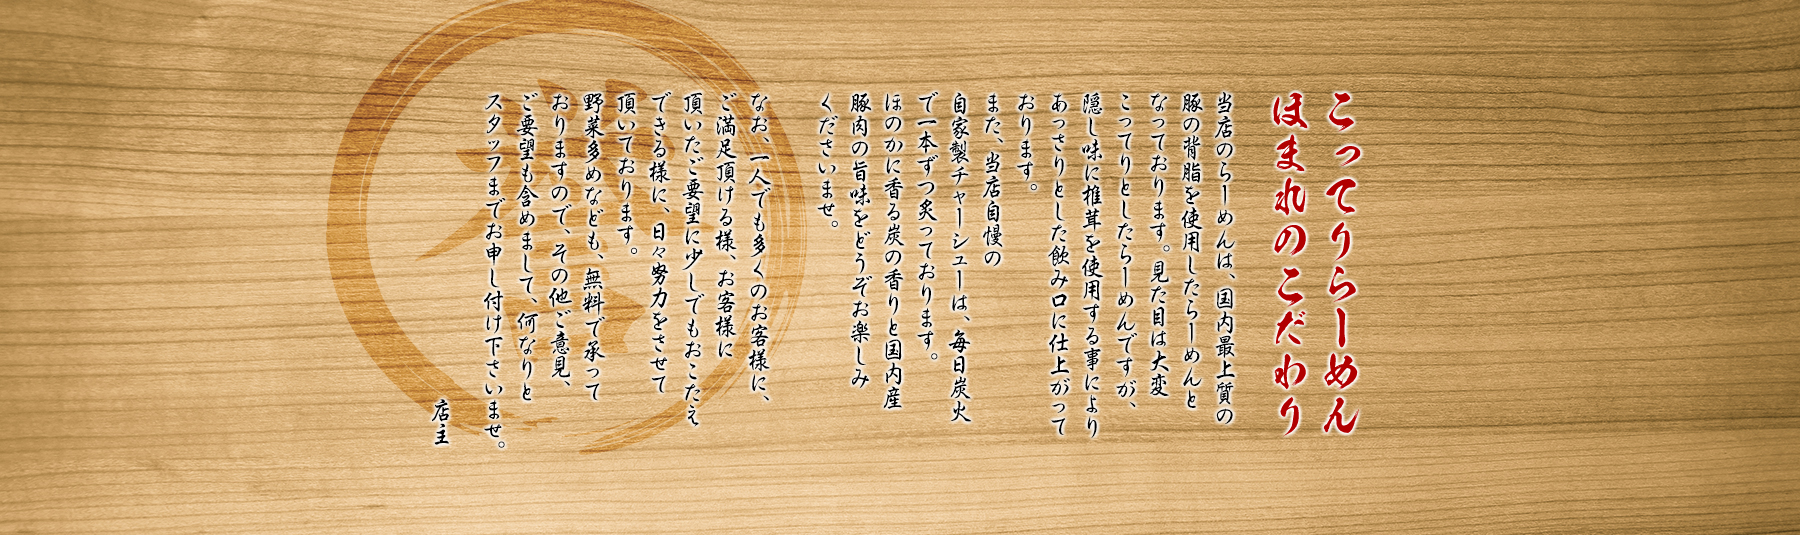 こってりらーめん
ほまれのこだわり
当店のらーめんは、国内最上質の
豚の背脂を使用したらーめんと
なっております。見た目は大変
こってりとしたらーめんですが、
隠し味に椎茸を使用する事により
あっさりとした飲み口に仕上がって
おります。
また、当店自慢の
自家製チャーシューは、毎日炭火
で一本ずつ炙っております。
ほのかに香る炭の香りと国内産
豚肉の旨味をどうぞお楽しみ
くださいませ。
なお、一人でも多くのお客様に、
ご満足頂ける様、お客様に
頂いたご要望に少しでもおこたえ
できる様に、日々努力をさせて
頂いております。
野菜多めなども、無料で承って
おりますので、その他ご意見、
ご要望も含めまして、何なりと
スタッフまでお申し付け下さいませ。
店主